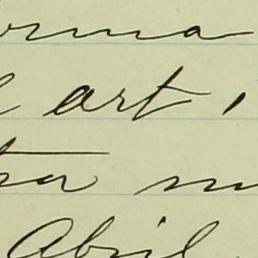 rma
art,
tra m
Abril